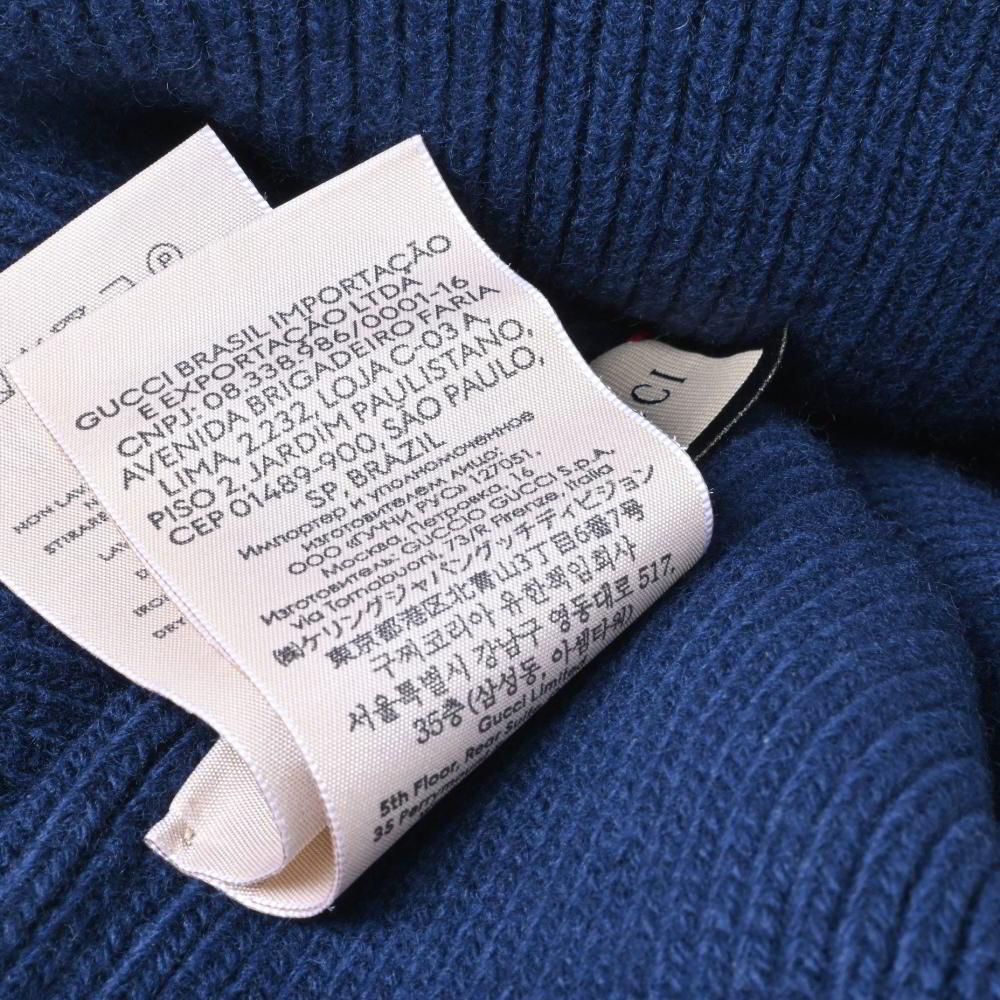 GUCCI BRASIL IMPORTAÇÃO
E EXPORTAÇÃO LTDA
CNPJ: 08.338.986/0001-16
AVENIDA BRIGADEIRO FARIA
LIMA, 2.232, LOJA C-03 A,
PISO 2, JARDIM PAULISTANO,
CEP 01489-900, SÃO PAULO,
SP, BRAZIL
Импортер и уполномоченное
изготовителем лицо:
ООО «ГУЧЧИ РУС» 127051,
Москва, Петровка, 16
Изготовитель: GUCCIO GUCCI S.p.A.
via Tornabuoni, 73/R Firenze, Italia
㈱ケリングジャパングッチディビジョン
東京都港区北青山3丁目6番7号
구찌코리아 유한책임회사
서울특별시 강남구 영동대로 517,
35층(삼성동, 아셈타워)
Gucci Limited
5th Floor, Rear
35
NON LAV
STIRARE
LAV
IRON
DRY
CI